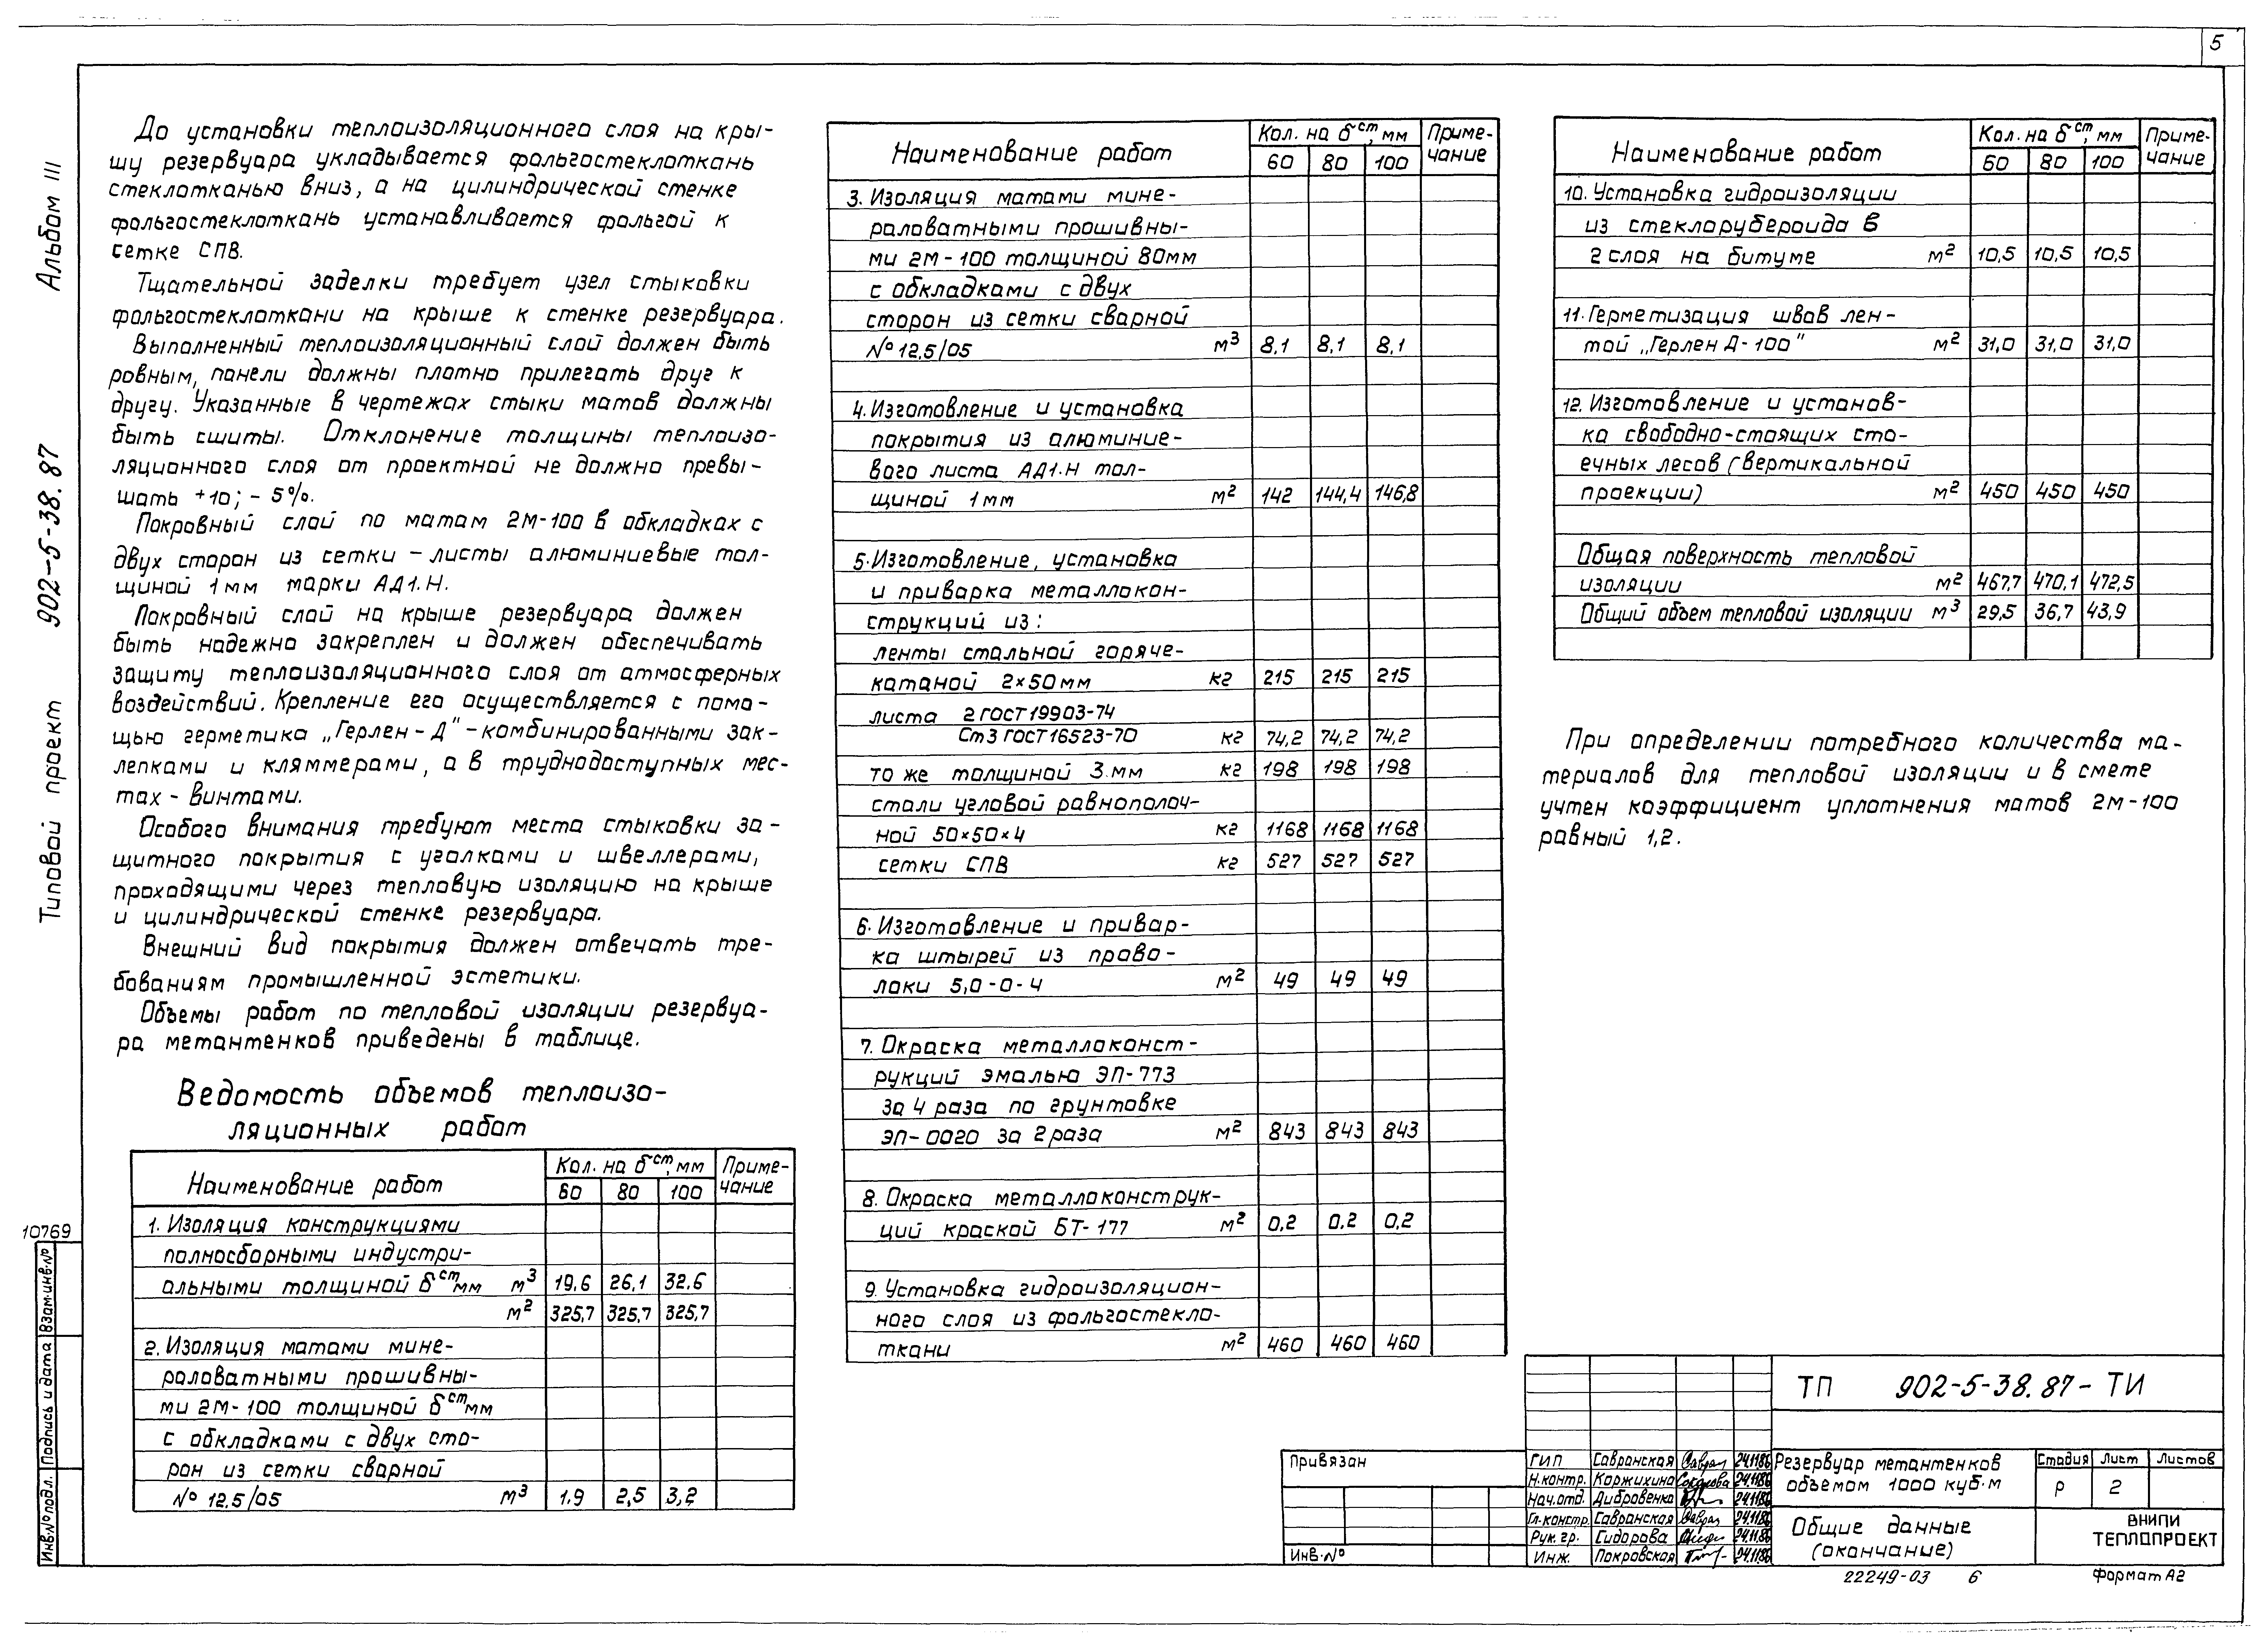 5
Альбом III
902-5-38.87
Типовой проект
До установки теплоизоляционного слоя на кры-
шу резервуара укладывается фольгостеклоткань
стеклотканью вниз, а на цилиндрической стенке
фольгостеклоткань устанавливается фольгой к
сетке СПВ.
Тщательной заделки требует узел стыковки
фольгостеклоткани на крыше к стенке резервуара.
Выполненный теплоизоляционный слой должен быть
ровным, панели должны плотно прилегать друг к
другу. Указанные в чертежах стыки матов должны
быть сшиты. Отклонение толщины теплоизо-
ляционного слоя от проектной не должно превы-
шать +10; - 5%.
Покровный слой по матам 2М-100 в обкладках с
двух сторон из сетки - листы алюминиевые тол-
щиной 1мм марки АД1.Н.
Покровный слой на крыше резервуара должен
быть надежно закреплен и должен обеспечивать
защиту теплоизоляционного слоя от атмосферных
воздействий. Крепление его осуществляется с помо-
щью герметика „Герлен-Д" - комбинированными зак-
лепками и кляммерами, а в труднодоступных мес-
тах - винтами.
Особого внимания требуют места стыковки за-
щитного покрытия с уголками и швеллерами,
проходящими через тепловую изоляцию на крыше
и цилиндрической стенке резервуара.
Внешний вид покрытия должен отвечать тре-
бованиям промышленной эстетики.
Объемы работ по тепловой изоляции резервуа-
ра метантенков приведены в таблице.
Ведомость объемов теплоизо-
ляционных работ
Наименование работ Кол. на δст, мм Приме-
60 80 100 чание
1. Изоляция конструкциями
полносборными индустри-
альными толщиной δст мм м3 19,6 26,1 32.6
м2 325,7 325,7 325,7
2. Изоляция матами мине-
раловатными прошивны-
ми 2М-100 толщиной δст мм
с обкладками с двух сто-
рон из сетки сварной
№ 12,5/05 м3 1.9 2,5 3,2
Наименование работ Кол. на δст, мм Приме-
60 80 100 чание
3. Изоляция матами мине-
раловатными прошивны-
ми 2М-100 толщиной 80мм
с обкладками с двух
сторон из сетки сварной
№ 12,5/05 м3 8,1 8,1 8,1
4. Изготовление и установка
покрытия из алюминие-
вого листа АД1.Н тол-
щиной 1мм м2 142 144,4 146,8
5. Изготовление, установка
и приварка металлокон-
струкций из:
ленты стальной горяче-
катаной 2×50мм кг 215 215 215
листа 2 ГОСТ 19903-74
Ст3 ГОСТ 16523-70 кг 74,2 74,2 74,2
то же толщиной 3.мм кг 198 198 198
стали угловой равнополоч-
ной 50×50×4 кг 1168 1168 1168
сетки СПВ кг 527 527 527
6. Изготовление и привар-
ка штырей из прово-
локи 5,0-0-4 м2 49 49 49
7. Окраска металлоконст-
рукций эмалью ЭП-773
за 4 раза по грунтовке
ЭП-0020 за 2 раза м2 843 843 843
8. Окраска металлоконструк-
ций краской БТ-177 м2 0,2 0.2 0,2
9. Установка гидроизоляцион-
ного слоя из фольгостекло-
ткани м2 460 460 460
Наименование работ Кол. на δст, мм Приме-
60 80 100 чание
10. Установка гидроизоляции
из стеклорубероида в
2 слоя на битуме м2 10,5 10,5 10,5
11. Герметизация швов лен-
той „Герлен Д-100" м2 31,0 31,0 31,0
12. Изготовление и установ-
ка свободно-стоящих сто-
ечных лесов (вертикальной
проекции) м2 450 450 450
Общая поверхность тепловой
изоляции м2 467,7 470,1 472,5
Общий объем тепловой изоляции м3 29,5 36,7 43,9
При определении потребного количества ма-
териалов для тепловой изоляции и в смете
учтен коэффициент уплотнения матов 2М-100
равный 1,2.
10769
Взам.инв.№
Подпись и дата
Инв.№ подл.
Привязан
Инв.№
ТП 902-5-38.87-ТИ
ГИП Савранская 24.11.86
Н.контр. Коржихина 24.11.86
Нач.отд. Дибровенко 24.11.86
Гл.констр. Савранская 24.11.86
Рук.гр. Сидорова 24.11.86
Инж. Покровская 24.11.86
Резервуар метантенков
объемом 1000 куб.м
Стадия Лист Листов
Р 2
Общие данные
(окончание)
ВНИПИ
ТЕПЛОПРОЕКТ
22249-03 6 Формат А2